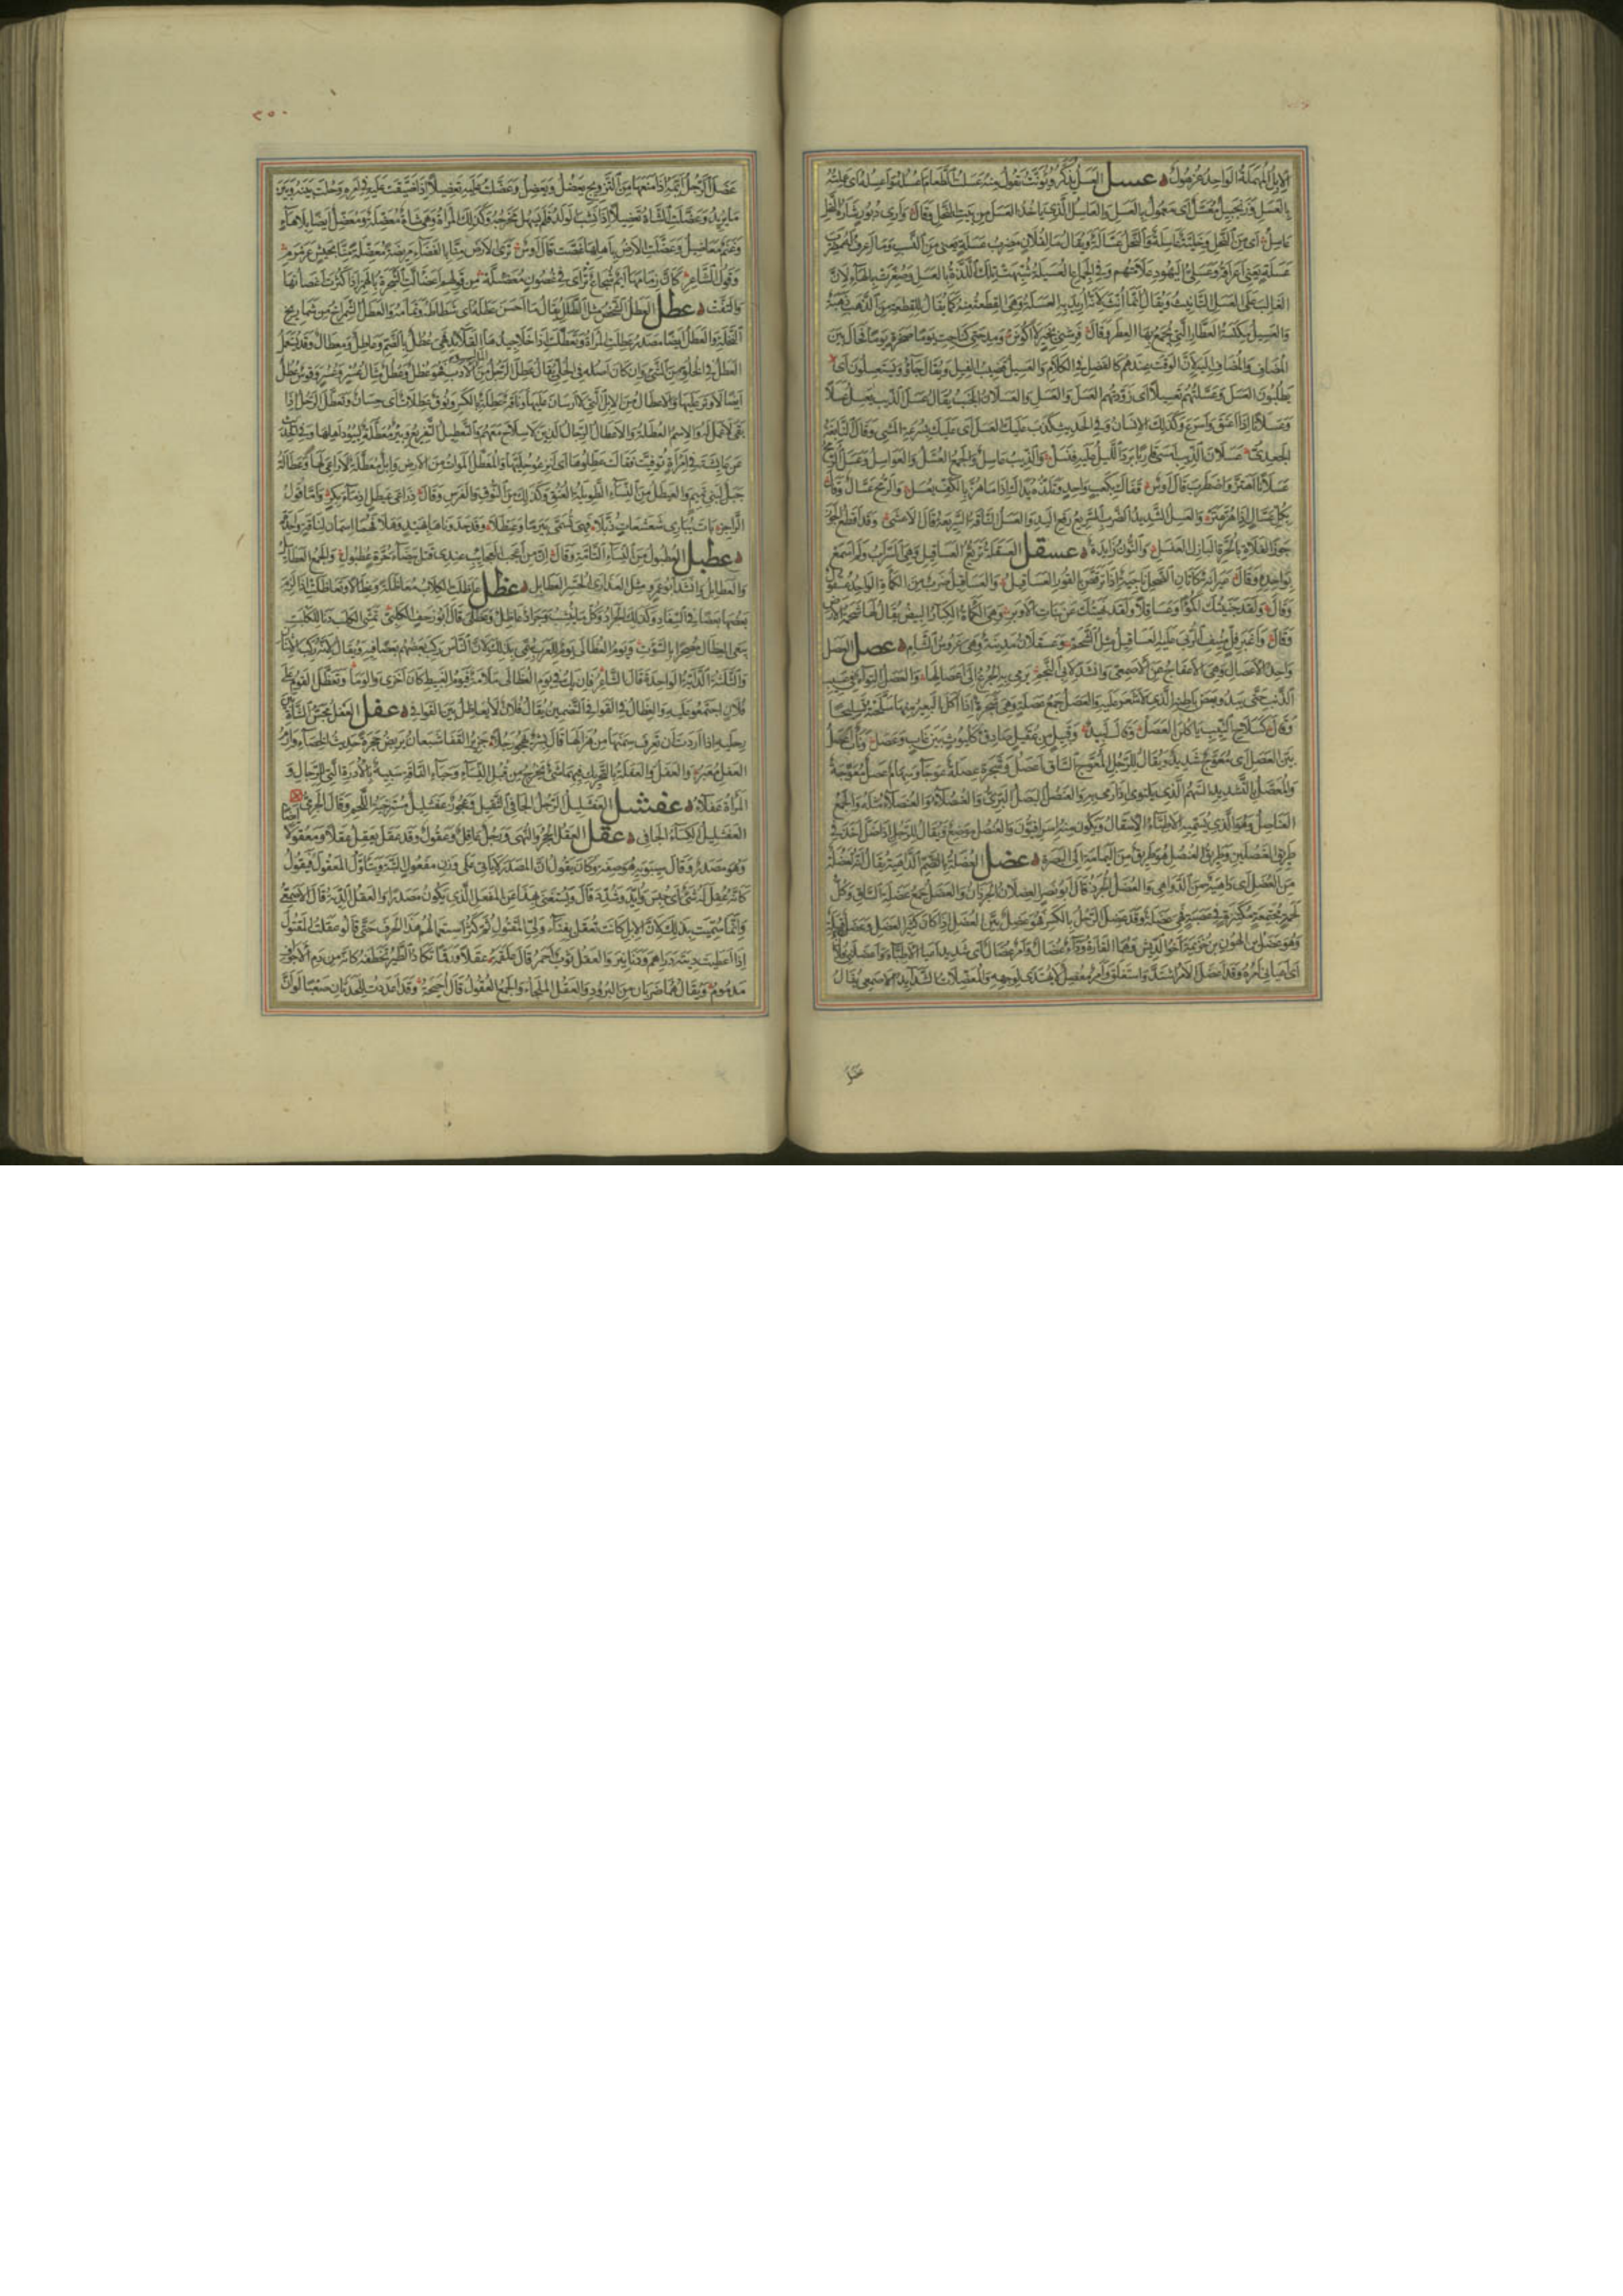 الإبل المهملة الواحد عزهول عسل العسل يذكر ويؤنث تقول منه عسلت الطعام أعسله وأعسله أي عملته
بالعسل وزنجبيل معسل أي معمول بالعسل والعاسل الذي يأخذ العسل من بيت النحل وقال وأري دبور شاره النحل
عاسل أي من النحل وخلية عاسلة والنحل عسالة ويقال ما لفلان مضرب عسلة يعني من النسب وما أعرف له مضرب
عسلة يعني أعراقه وعسلي اليهود علامتهم وفي الجماع العسيلة شبهت تلك اللذة بالعسل وصغرت بالهاء لأن
الغالب على العسل التأنيث ويقال إنما أنث لأنه أريد به العسلة وهي القطعة منه كما يقال للقطعة من الذهب ذهبة
والعسيل مكنسة العطار التي يجمع بها العطر وقال فرشني بخير لا أكونن ومدحتي كناحت يوما صخرة بعسيل فحال بين
المضاف والمضاف إليه لأن الوقت عندهم كالفضل في الكلام والعسيل قضيب الفيل ويقال جاؤا يستعسلون أي
يطلبون العسل وعسلتهم تعسيلا أي زودتهم العسل والعسل والعسلان الخبب يقال عسل الذئب يعسل عسلا
وعسلانا إذا أعنق وأسرع وكذلك الإنسان وفي الحديث كذب عليك العسل أي عليك بسرعة المشي وقال النابغة
الجعدي عسلان الذئب أمسى قاربا برد الليل عليه فنسل والذئب عاسل والجمع العسل والعواسل وعسل الرمح
عسلانا اهتز واضطرب قال أوس تقاك بكعب واحد وتلذه يداك إذا ما هز بالكف يعسل والرمح عسال وقال
بكل عسال إذا هز عتر والعسل الشديد الضرب السريع رفع اليد والعنسل الناقة السريعة قال الأعشى وقد أقطع الجوز
جوز الفلاة بالحرة البازل العنسل والنون زايدة عسقل العسقلة تريع العساقيل وهي السراب ولم أسمع
بواحده وقال عيرانة كأتان الضحل ناجية إذا ترقص بالقور العساقيل والعساقيل ضرب من الكمأة الواحد عسقول
وقال ولقد جنيتك أكمؤا وعساقلا ولقد نهيتك عن بنات الأوبر وهي الكمأة الكبار البيض يقال لها شحمة الأرض
وقال وأغبر فل منيف الربى عليه العساقيل مثل الشحم وعسقلان مدينة وهي عروس الشام عصل العصل
واحد الأعصال وهي الأعفاج عن الأصمعي وأنشد لأبي النجم يرمي به الجرع إلى أعصالها والعصل التواء في عسيب
الذنب حتى يبدو بعض باطنه الذي لا شعر عليه والعصل جمع عصلة وهي شجرة إذا أكل البعير منها سلحته تسليحا
وقال كسلاح النيب يأكلن العصل وقال لبيد وقبيل من عقيل صادق كليوث بين غاب وعصل وناب أعصل
بين العصل أي معوج شديد ويقال للرجل المعوج الساق أعصل وشجرة عصلة عوجاء وسهام عصل معوجة
والمعصل بالتشديد السهم الذي يلتوي إذا رمي به والعنصل البصل البري والعنصلاء والعنصلاء مثله والجمع
العناصل وهو الذي تسميه الأطباء الإسقال ويكون منه خل والعنصل موضع ويقال للرجل إذا ضل أخذ في
طريق العنصلين وطريق العنصل هو طريق من اليمامة إلى البصرة عضل العضلة بالضم الداهية يقال إنه لعضلة
من العضل أي داهية من الدواهي والعضل الجرذ قال أبو نصر العضلان الجرذان والعضل جمع عضلة الساق وكل
لحمة مجتمعة مكتنزة في عصبة فهي عضلة وقد عضل الرجل بالكسر فهو عضل بين العضل إذا كان كثير العضل وعضل قبيلة
وهو عضل بن الهون بن خزيمة أخو الديش وهما القارة وداء عضال وأمر عضال أي شديد أعيا الأطباء وأعضلني فلان
أي أعياني أمره وقد أعضل الأمر اشتد واستغلق وأمر معضل لا يهتدى لوجهه والمعضلات الشدايد الأصمعي يقال
عضل
٢٥٠
عضل الرجل أيمه إذا منعها من التزويج يعضل ويعضل وعضلت عليه تعضيلا إذا ضيقت عليه في أمره وحلت بينه وبين
ما يريد وعضلت الشاة تعضيلا إذا نشب الولد فلم يسهل مخرجه وكذلك المرأة وهي شاة معضلة ومعضل أيضا بلا هاء
وغنم معاضيل وعضلت الأرض بأهلها غصت قال أوس ترى الأرض منا بالفضاء مريضة معضلة منا بجيش عرمرم
وقول الشاعر كأن زمامها أيم شجاع تراءى في غصون معضئلة من قولهم اعضألت الشجرة بالهمز إذا كثرت أغصانها
والتفت عطل العطل الشخص مثل الطلل يقال ما أحسن عطله أي شطاطه وتمامه والعطل الشمراخ من شماريخ
النخلة والعطل أيضا مصدر عطلت المرأة وتعطلت إذا خلا جيدها من القلائد فهي عطل بالضم وعاطل ومعطال وقد يستعمل
العطل في الخلو من الشيء وإن كان أصله في الحلي يقال عطل الرجل من المال والأدب فهو عطل وعطل مثال عسر وعسر وقوس عطل
أيضا لا وتر عليها والأعطال من الإبل التي لا أرسان عليها وناقة عطلة بالكسر ونوق عطلات أي حسان وتعطل الرجل إذا
بقي لا عمل له والاسم العطلة والأعطال الرجال الذين لا سلاح معهم والتعطيل التفريغ وبئر معطلة لبيود أهلها وفي الحديث
عن عائشة في امرأة توفيت فقالت عطلوها أي انزعوا حليها والمعطل الموات من الأرض وإبل معطلة لا راعي لها وعطالة
جبل لبني تميم والعيطل من النساء الطويلة العنق وكذلك من النوق والفرس وقال ذراعي عيطل أدماء بكر وأما قول
الراجز بات يباري شعشعات ذبلا فهي تسمى بيرما وعيطلا وقد حدوناها بهيد وهلا فهما اسمان لناقة واحدة
عطبل العطبول من النساء التامة وقال إن من أعجب العجايب عندي قتل بيضاء حرة عطبول والجمع العطابيل
والعطابل وأنشد أبو عمرو مثل العذارى الحسر العطابل عظل عاظلت الكلاب معاظلة وعظالا وتعاظلت إذا لزم
بعضها بعضا في السفاد وكذلك الجراد وكل ما ينشب وجراد عاظلة وعظلى قال أبو زحف الكلبي تمشي الكلب دنا للكلبة
يبغي العظال مصحرا بالسوءة ويوم العظالى يوم للعرب سمي بذلك لأن الناس ركب بعضهم بعضا فيه ويقال لأنه ركب الاثنان
والثلاثة الدابة الواحدة قال الشاعر فإن يك في يوم العظالى ملامة فيوم الغبيط كان أخزى وألوما وتعظل القوم على
فلان اجتمعوا عليه والعظال في القوافي التضمين يقال فلان لا يعاظل بين القوافي عفل العفل مجس الشاة بين
رجليها إذا أردت أن تعرف سمنها من هزالها قال بشر يهجو رجلا جزيز القفا شبعان يربض حجرة حديث الخصاء وارم
العفل معبر والعفل والعفلة بالتحريك فيهما شيء يخرج من قبل النساء وحياء الناقة شبيه بالأدرة التي للرجال و
المرأة عفلاء عفشل العفشليل الرجل الجافي الثقيل وعجوز عفشليل مسترخية اللحم وقال الجرمي
العفشليل الكساء الجافي عقل العقل الحجر والنهى ورجل عاقل وعقول وقد عقل يعقل عقلا ومعقولا
وهو مصدر وقال سيبويه هو صفة وكان يقول إن المصدر لا يأتي على وزن مفعول البتة ويتأول المعقول فيقول
كأنه عقل له شيء أي حبس وأيد وشدد قال ويستغنى بهذا عن المفعل الذي يكون مصدرا والعقل الدية قال الأصمعي
وإنما سميت بذلك لأن الإبل كانت تعقل بفناء ولي المقتول ثم كثر استعمالهم هذا الحرف حتى قالوا عقلت المقتول
إذا أعطيت ديته دراهم ودنانير والعقل ثوب أحمر قال علقمة عقلا ورقما تكاد الطير تخطفه كأنه من دم الأجواف
مدموم ويقال هما ضربان من البرود والعقل الملجأ والجمع العقول قال أحيحة وقد أعددت للحدثان صعبا لو أن